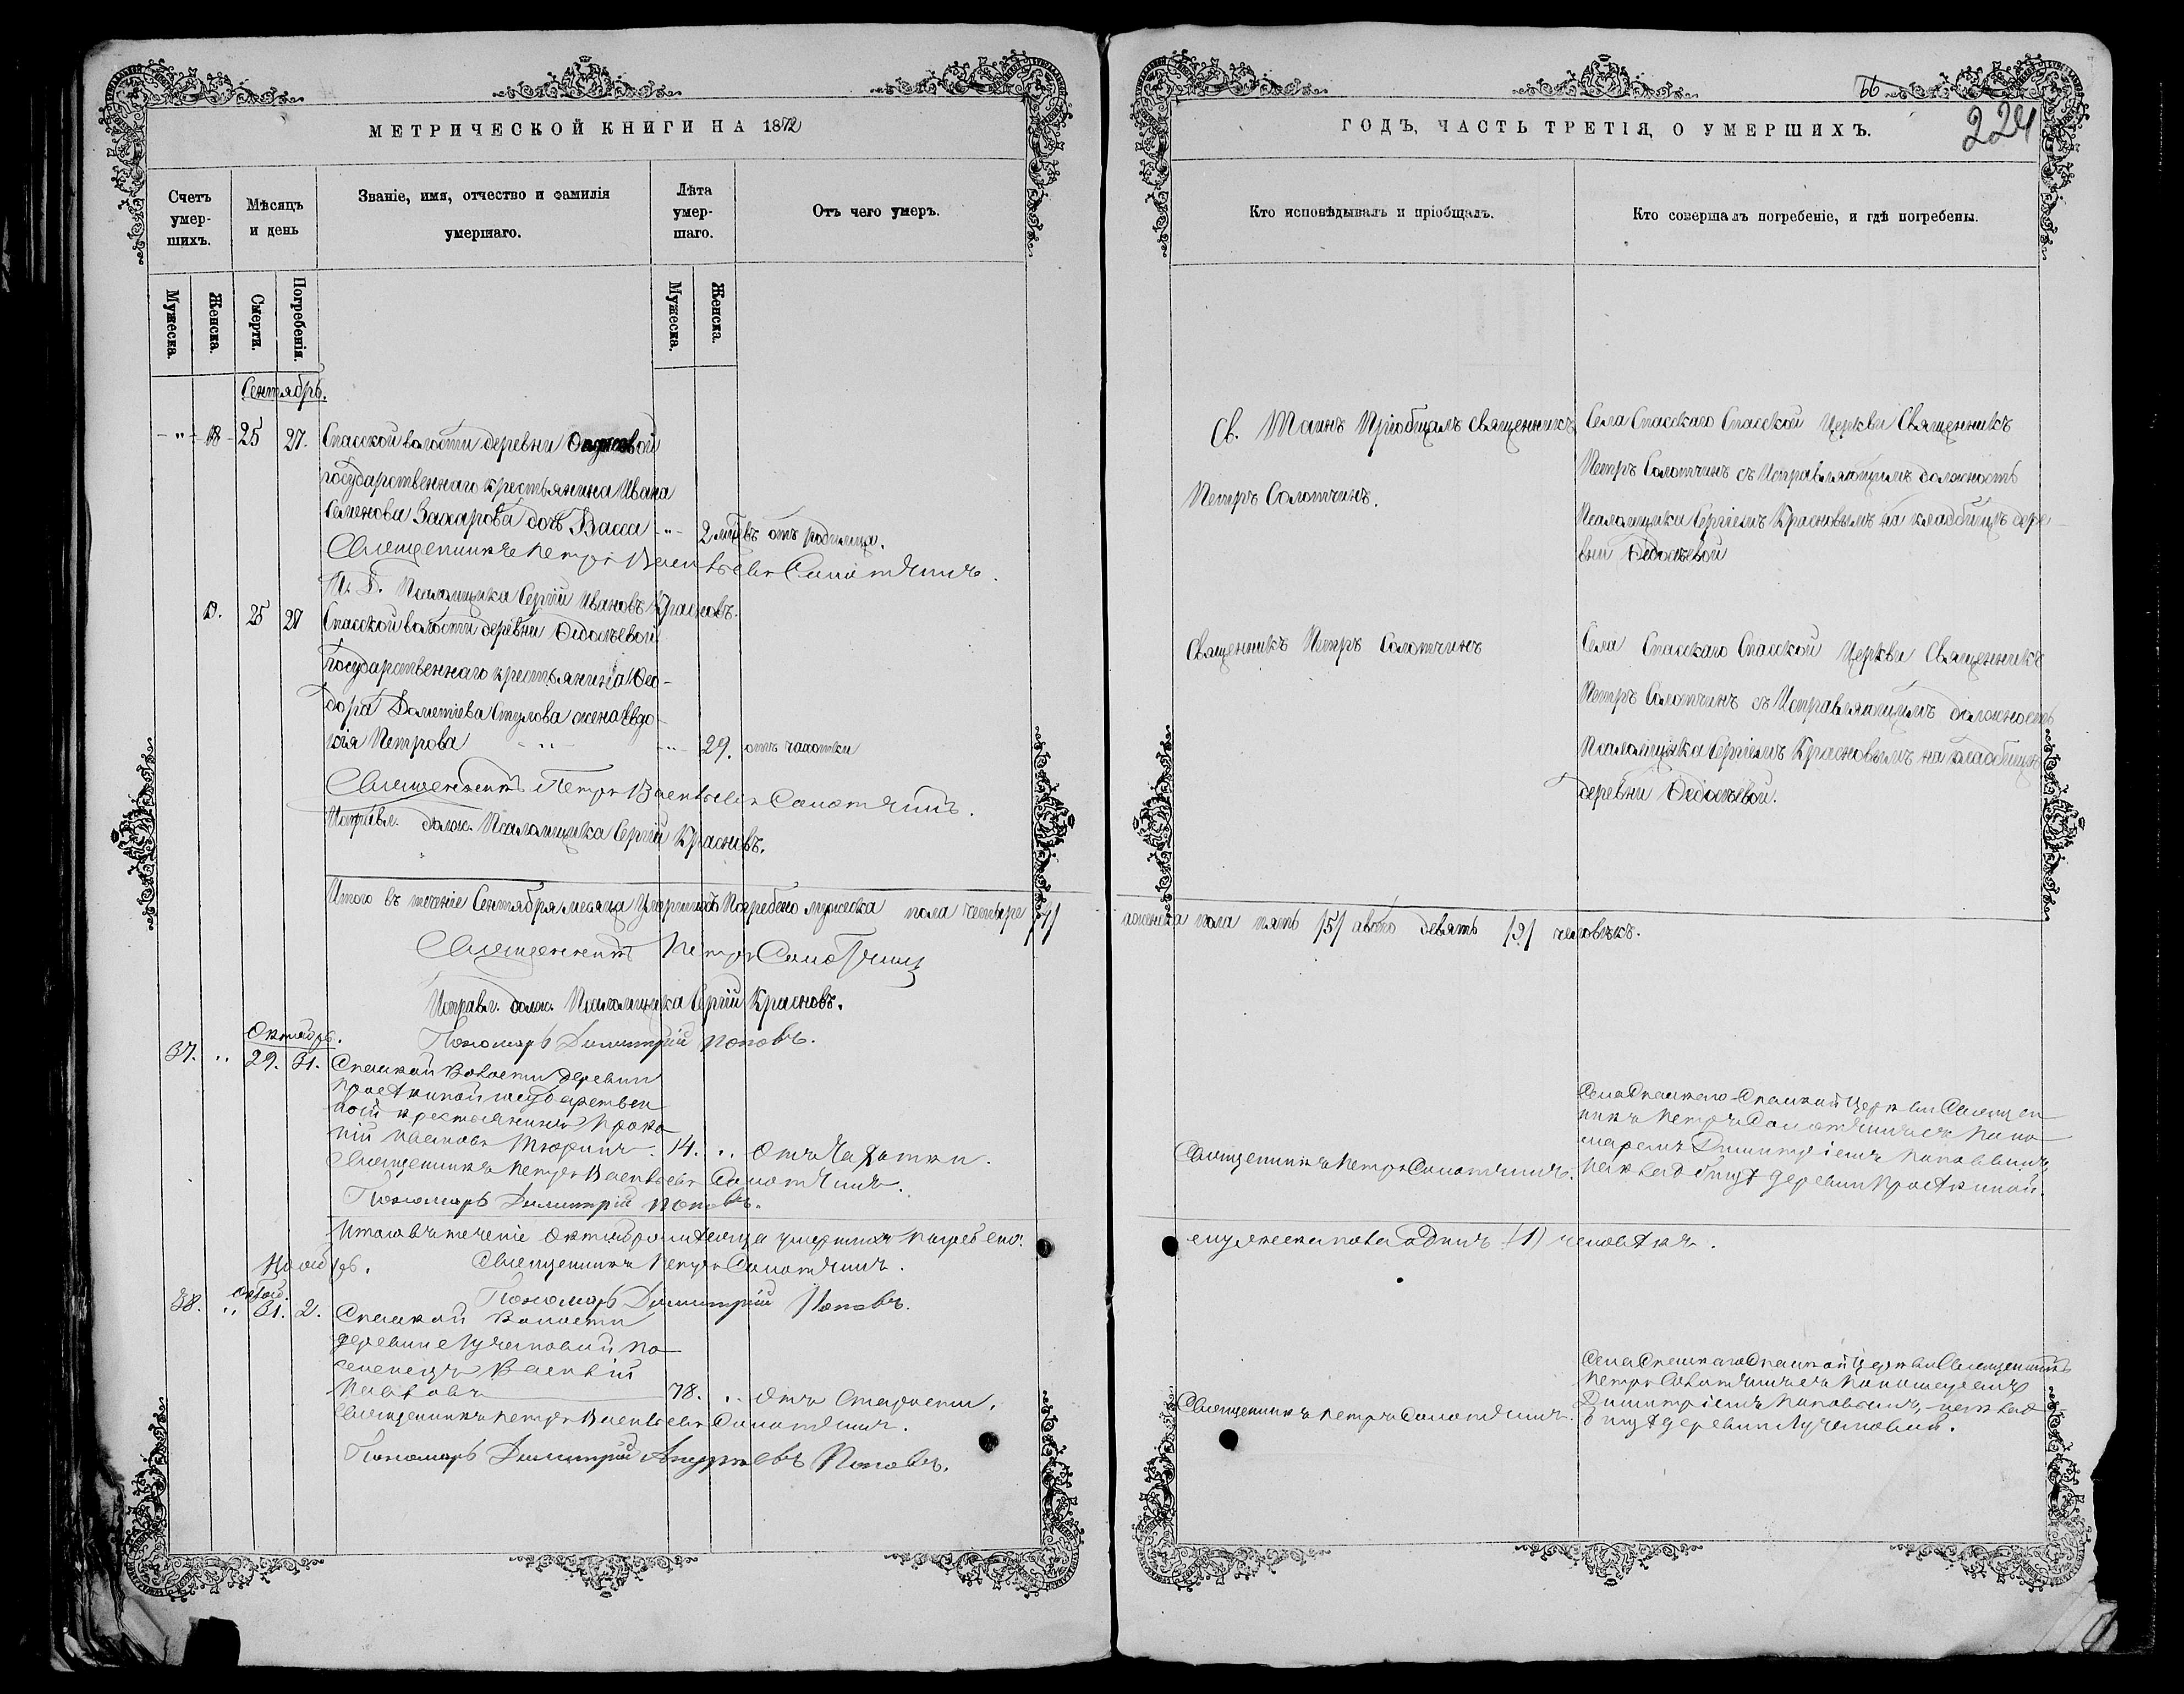 МЕТРИЧЕСКОЙ КНИГИ НА 1872
Счетъ умер-шихъ.
Мѣсяцъ и день
Званіе, имя, отчество и фамилія умершаго.
Лѣта умер-шаго.
Отъ чего умеръ.
Мужеска.
Женска.
Смерти.
Погребенія.
Мужеска.
Женска.
Сентябрь.
25 27. Спасской волости деревни
государственнаго крестьянина Ивана
Семенова Захарова дочь Васса 2 лѣтъ отъ родимца.
Священникъ Петръ Васильевъ Солотчинъ.
И. Д. Псаломщика Сергій Ивановъ Красновъ.
25 27 Спасской волости деревни Ѳедосѣевой
государственнаго крестьянина Ѳео-
дора Дометіева Стулова жена Евдо-
кія Петрова 29. отъ чахотки
Священникъ Петръ Васильевъ Солотчинъ.
Исправл. долж. Псаломщика Сергій Красновъ.
Итого въ теченіе Сентября мѣсяца Умершихъ Погребено мужеска пола четыре /4/
Священникъ Петръ Солотчинъ
Исправл. долж. Псаломщика Сергій Красновъ.
Пономарь Димитрій Поповъ.
Октябрь.
37. " 29. 31. Спасской Волости деревни
государствен
ной крестьянинъ Проко
пій Тюринъ. 14. " Отъ Чахотки.
Священникъ Петръ Васильевъ Солотчинъ.
Пономарь Димитрій Поповъ.
Итого въ теченіе Октября мѣсяца умершихъ погребено.
Священникъ Петръ Солотчинъ.
Пономарь Димитрій Поповъ.
Ноябрь.
38. " 31. 2. Спасской Волости
деревни Лучановой по
селенецъ Василій
Павловъ 78. " Отъ Старости.
Священникъ Петръ Васильевъ Солотчинъ.
Пономарь Димитрій Андреевъ Поповъ.
66
224
ГОДЪ, ЧАСТЬ ТРЕТІЯ, О УМЕРШИХЪ.
Кто исповѣдывалъ и пріобщалъ.
Кто совершалъ погребеніе, и гдѣ погребены.
Св. Таинъ Пріобщалъ священникъ
Петръ Солотчинъ.
Села Спасскаго Спасской Церкви Священникъ
Петръ Солотчинъ съ Исправляющимъ должность
Псаломщика Сергіемъ Красновымъ на кладбищѣ дере-
вни Ѳедосѣевой
Священникъ Петръ Солотчинъ
Села Спасскаго Спасской Церкви Священникъ
Петръ Солотчинъ съ Исправляющимъ должность
Псаломщика Сергіемъ Красновымъ на кладбищѣ
деревни Ѳедосѣевой.
а женска пола пять /5/ а всего девять /9/ человѣкъ.
Священникъ Петръ Солотчинъ.
Села Спасскаго Спасской Церкви Священ
никъ Петръ Солотчинъ съ Поно
маремъ Димитріемъ Поповымъ
на кладбищѣ деревни
мужеска пола одинъ (1) человѣкъ.
Священникъ Петръ Солотчинъ.
Села Спасскаго Спасской Церкви Священникъ
Петръ Солотчинъ съ Пономаремъ
Димитріемъ Поповымъ, на клад
бищѣ деревни Лучановой.